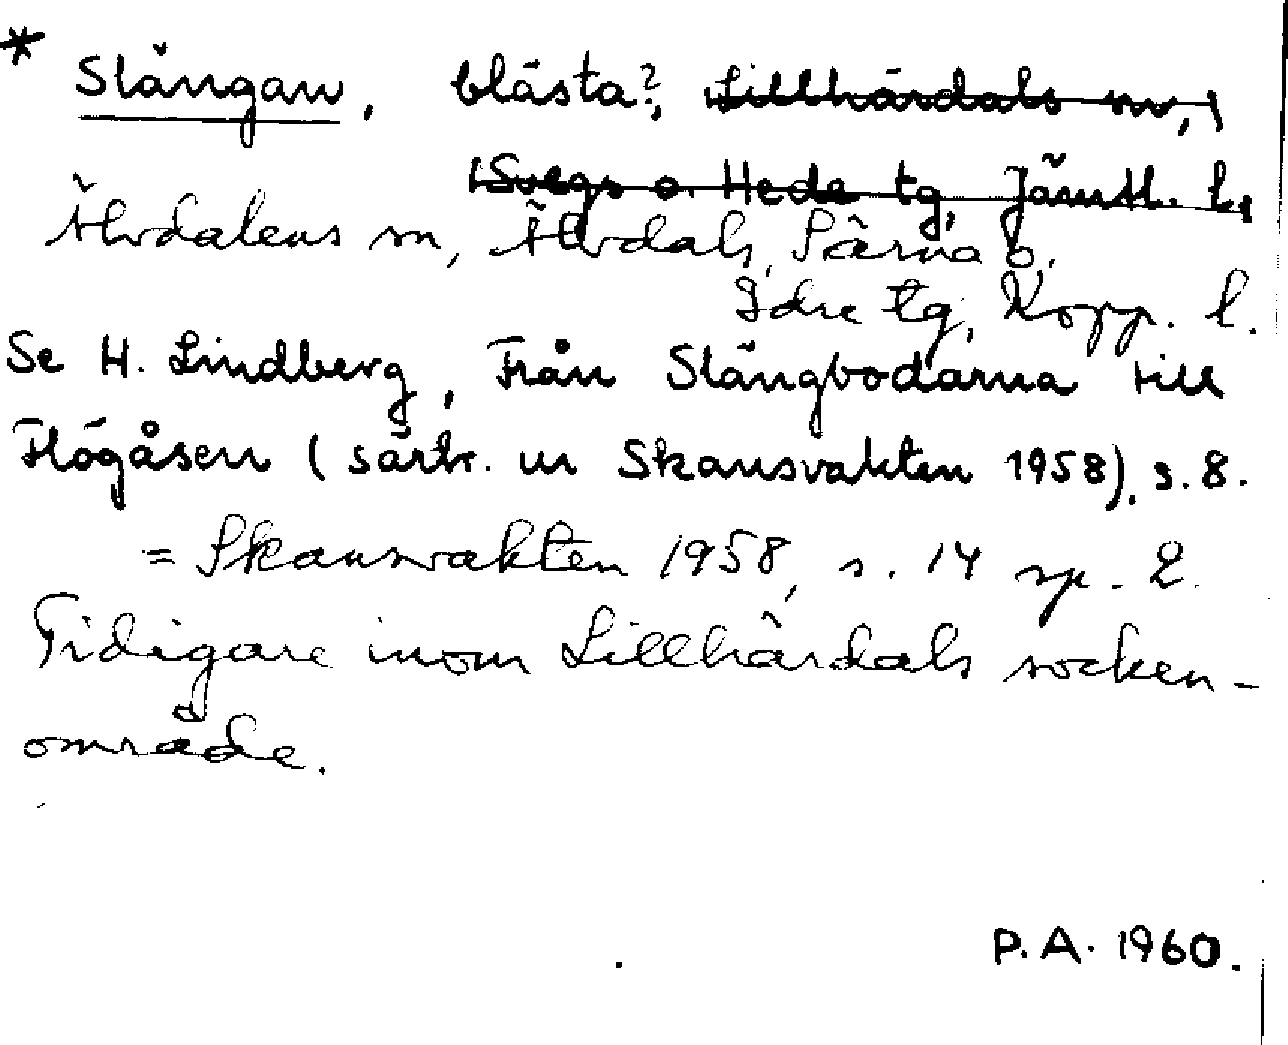 * Slängan, blästa?, Lillhärdals sn,
Svegs o. Hede tg, Jämtl. l.,
Älvdalens sn, Älvdals, Särna o.
Idre tg, Kopp. l.
Se H. Lindberg, Från Slängbodarna till
Högåsen (särtr. ur Skansvakten 1958), s. 8.
= Skansvakten 1958, s. 14 sp. 2.
Tidigare inom Lillhärdals socken-
område.
P.A. 1960.